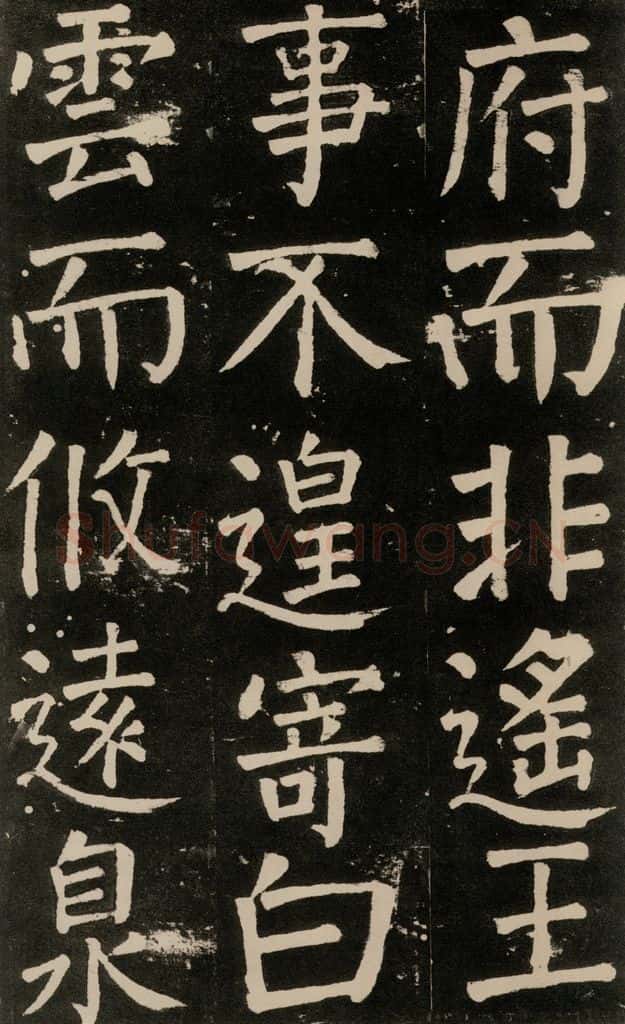 府而非遙王
事不遑寄白
雲而攸遠泉
Shufawang.CN